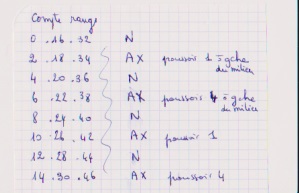 Compte rangs
0 . 16 . 32 N
2 . 18 . 34 AX poussoir 1 à gche du milieu
4 . 20 . 36 N
6 . 22 . 38 AX poussoir 4 à gche du milieu
8 . 24 . 40 N
10 . 26 . 42 AX poussoir 1
12 . 28 . 44 N
14 . 30 . 46 AX poussoir 4